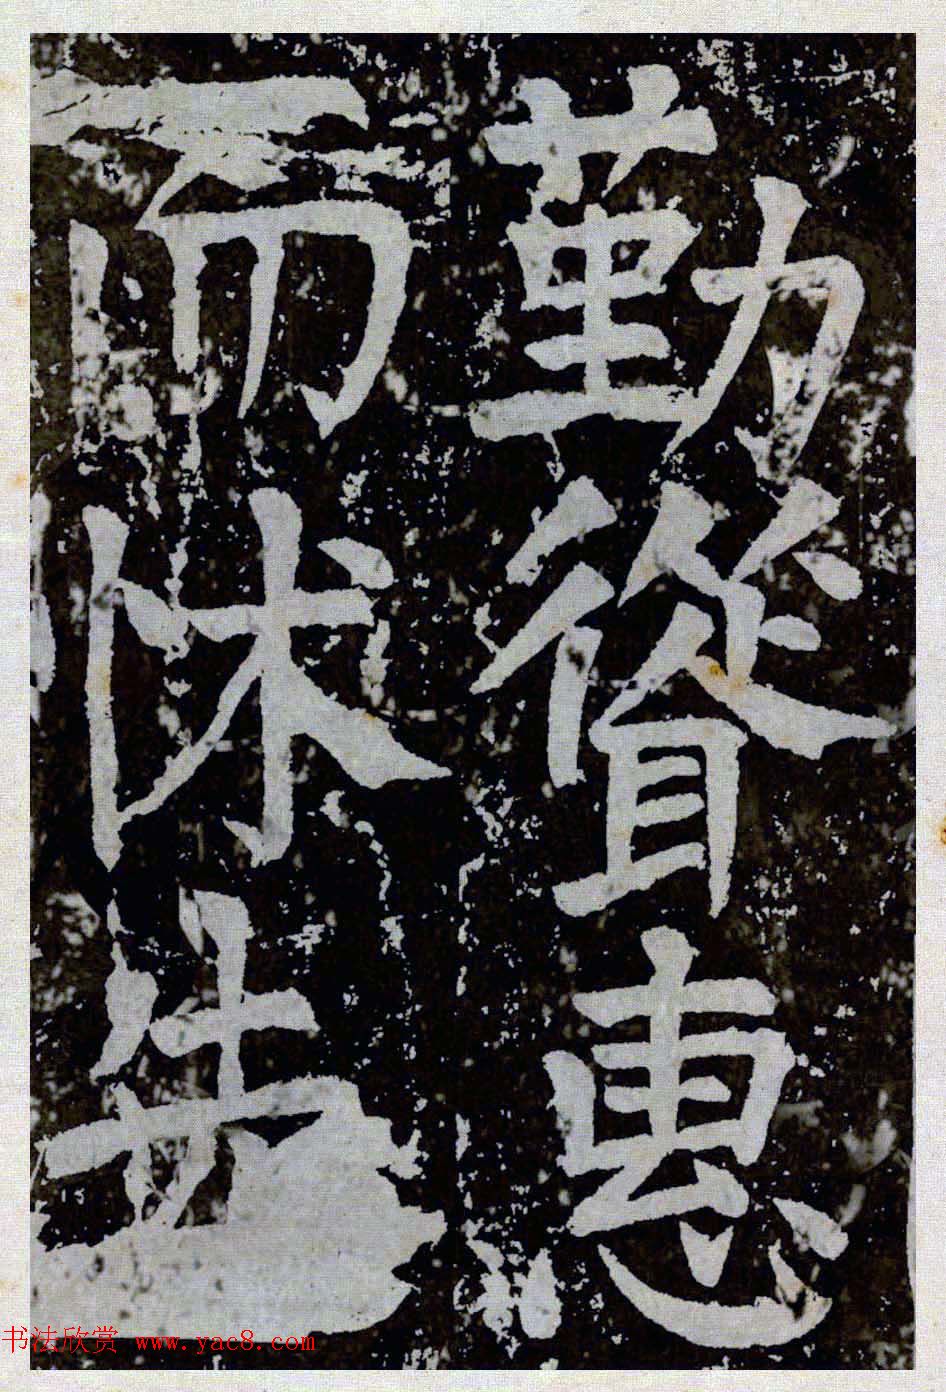 勤聳惠
而怵
书法欣赏 www.yac8.com